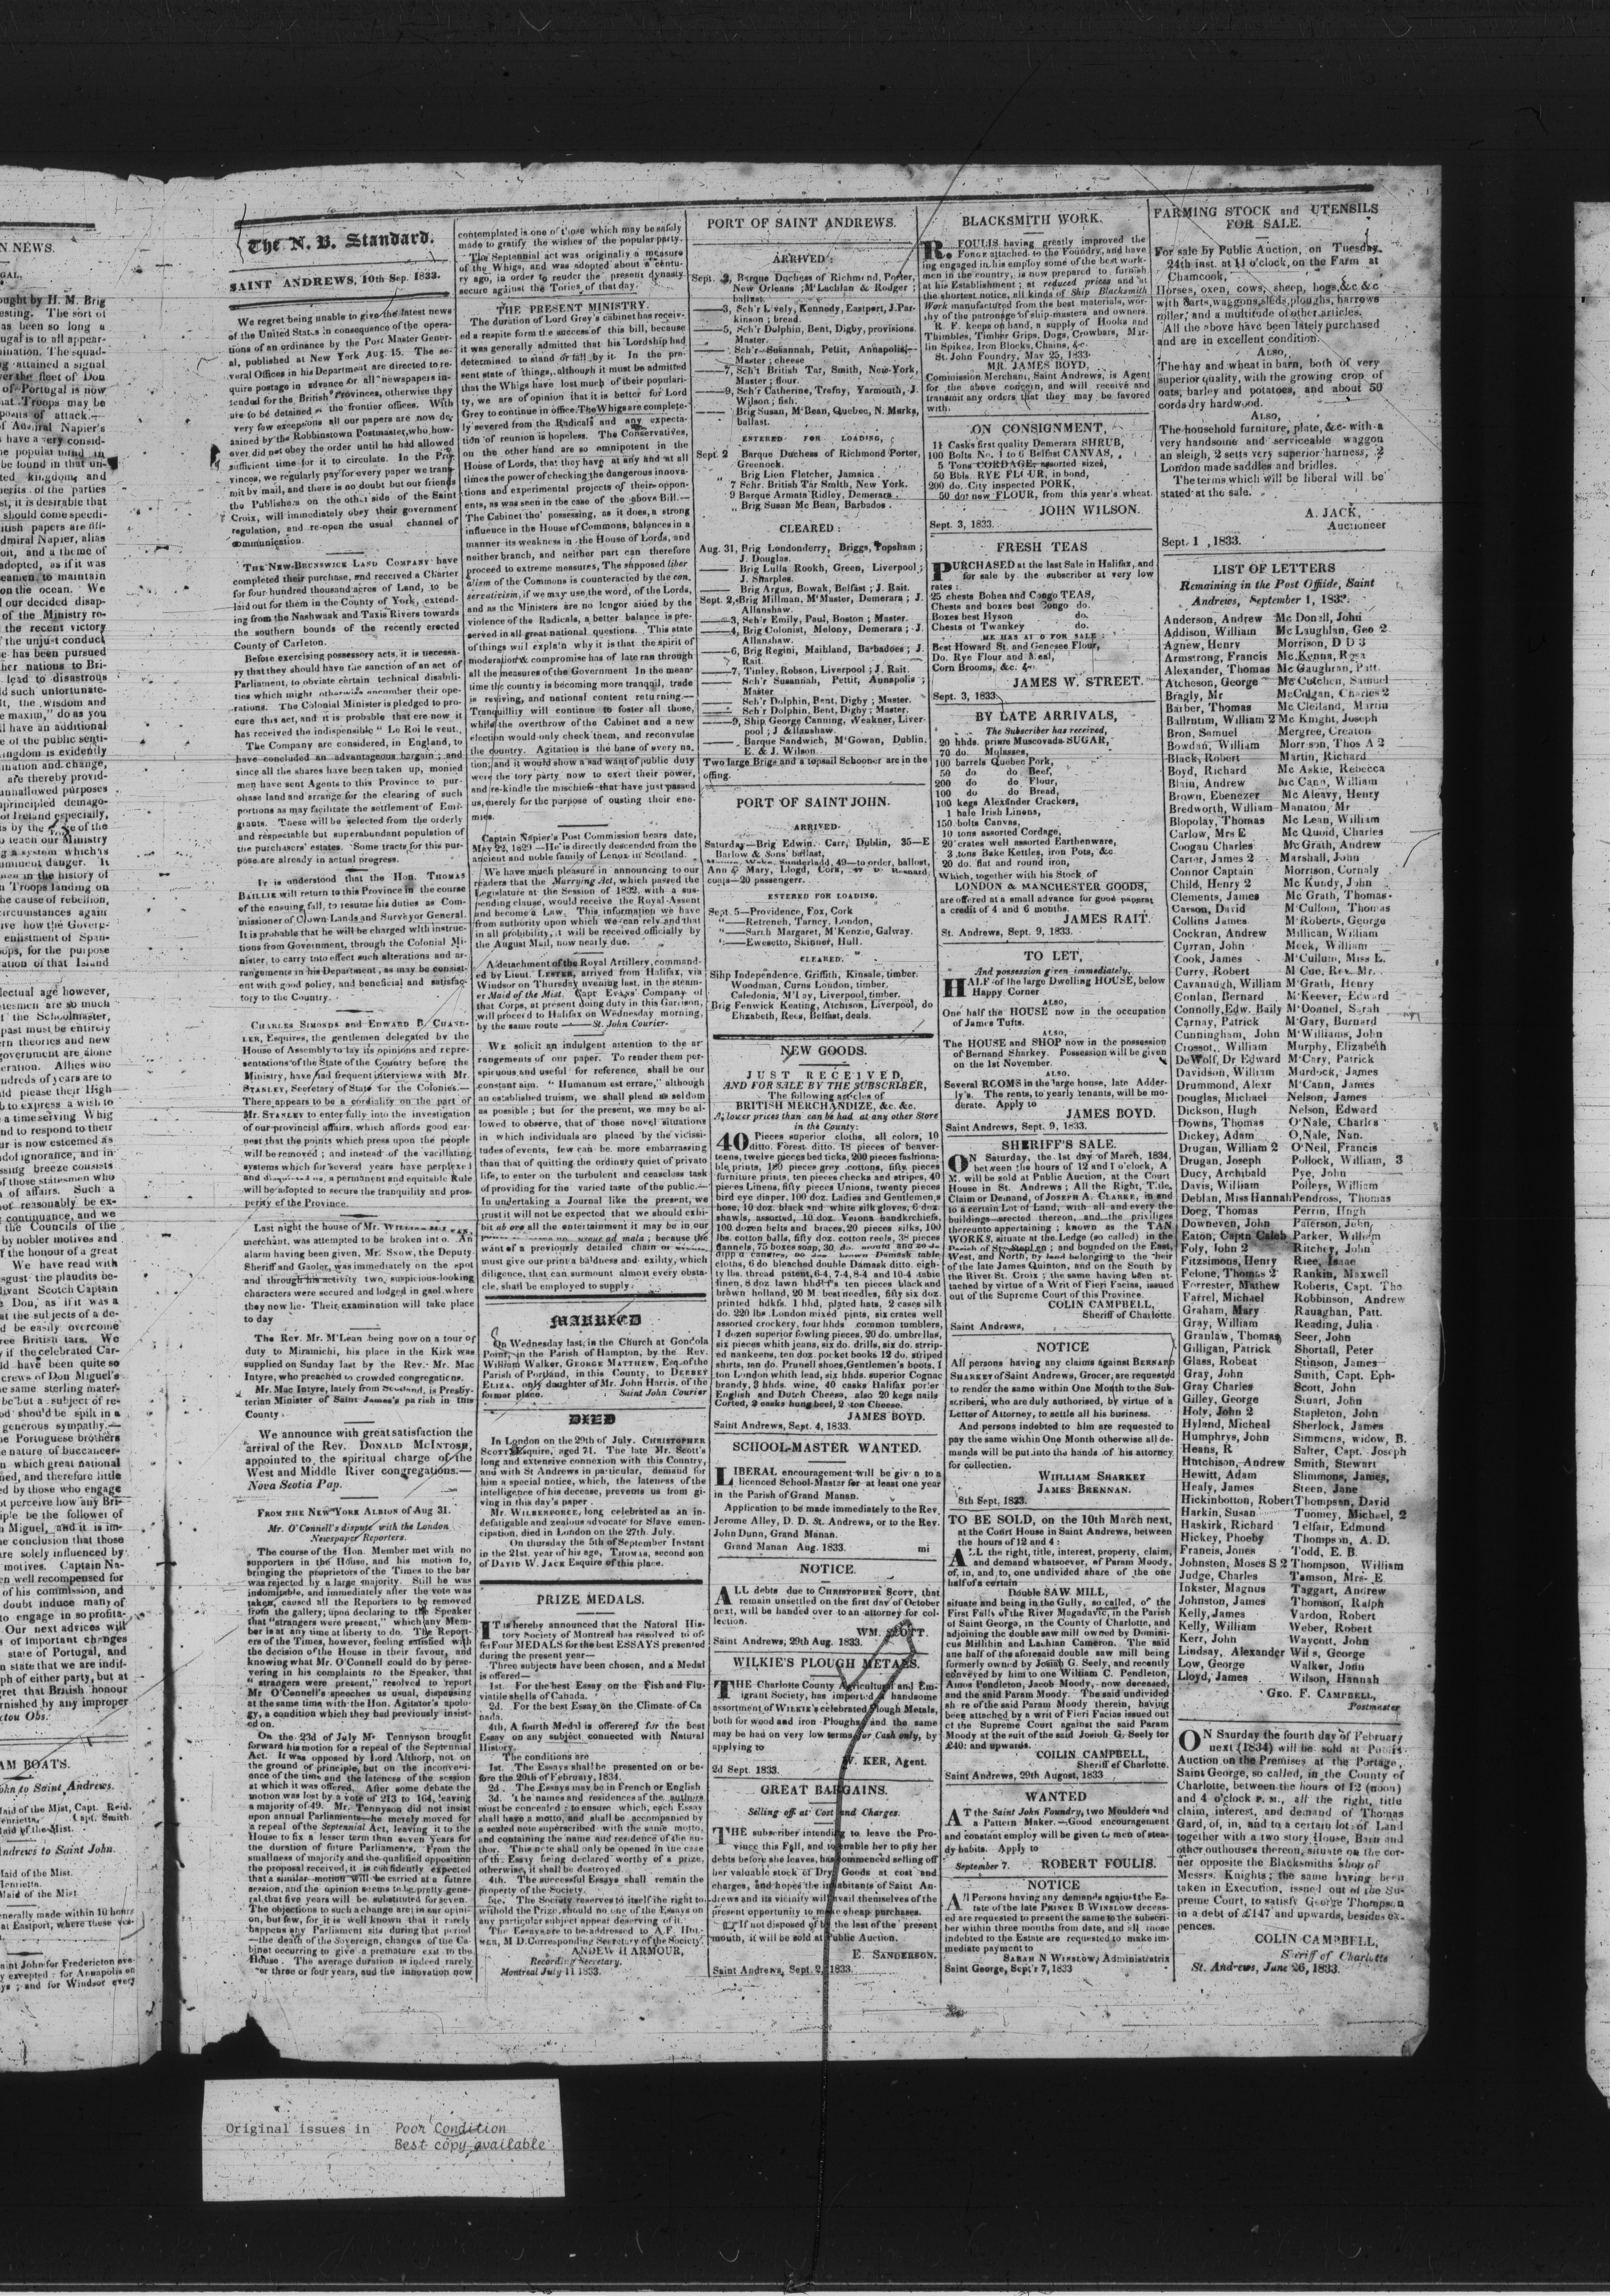 The N. B. Standard.
SAINT ANDREWS, 10th Sep. 1833.
We regret being unable to give the latest news
of the United States in consequence of the opera-
tions of an ordinance by the Post Master Gener-
al, published at New York Aug. 15. The se-
veral Offices in his Department are directed to re-
quire postage in advance for all newspapers in-
tended for the British Provinces, otherwise they
are to be detained at the frontier offices. With
very few exceptions all our papers are now de-
tained by the Robbinstown Postmaster, who, how-
ever did not obey the order until he had allowed
sufficient time for it to circulate. In the Pro-
vinces, we regularly pay for every paper we trans-
mit by mail, and there is no doubt but our friends
the Publishers on the other side of the Saint
Croix, will immediately obey their government
regulation, and re-open the usual channel of
communication.
THE NEW-BRUNSWICK LAND COMPANY have
completed their purchase, and received a Charter
for four hundred thousand acres of Land, to be
laid out for them in the County of York, extend-
ing from the Nashwaak and Taxis Rivers towards
the southern bounds of the recently erected
County of Carleton.
Before exercising possessory acts, it is necessa-
ry that they should have the sanction of an act of
Parliament, to obviate certain technical disabili-
ties which might otherwise encumber their ope-
rations. The Colonial Minister is pledged to pro-
cure this act, and it is probable that ere now it
has received the indispensible " Le Roi le veut.
The Company are considered, in England, to
have concluded an advantageous bargain; and
since all the shares have been taken up, monied
men have sent Agents to this Province to pur-
chase land and arrange for the clearing of such
portions as may facilitate the settlement of Emi-
grants. These will be selected from the orderly
and respectable but superabundant population of
the purchasers' estates. Some tracts for this pur-
pose are already in actual progress.
It is understood that the Hon. THOMAS
BAILLIE will return to this Province in the course
of the ensuing fall, to resume his duties as Com-
missioner of Clown Lands and Surveyor General.
It is probable that he will be charged with instruc-
tions from Government, through the Colonial Mi-
nister, to carry into effect such alterations and ar-
rangements in his Department, as may be consist-
ent with good policy, and beneficial and satisfac-
tory to the Country.
CHARLES SIMONDS and EDWARD B. CHAND-
LER, Esquires, the gentlemen delegated by the
House of Assembly to lay its opinions and repre-
sentations of the State of the Country before the
Ministry, have had frequent interviews with Mr.
STANLEY, Secretary of State for the Colonies.—
There appears to be a cordiality on the part of
Mr. STANLEY to enter fully into the investigation
of our provincial affairs, which affords good ear-
nest that the points which press upon the people
will be removed; and instead of the vacillating
systems which for several years have perplexed
and us, a permanent and equitable Rule
will be adopted to secure the tranquility and pros-
perity of the Province.
Last night the house of Mr.
merchant, was attempted to be broken into. An
alarm having been given, Mr. Snow, the Deputy
Sheriff and Gaoler, was immediately on the spot
and through his activity two suspicious-looking
characters were secured and lodged in gaol where
they now lie. Their examination will take place
to day
The Rev. Mr. M'Lean being now on a tour of
duty to Miramichi, his place in the Kirk was
supplied on Sunday last by the Rev. Mr. Mac
Intyre, who preached to crowded congregations.
Mr. Mac Intyre, lately from Scotland, is Presby-
terian Minister of Saint James's parish in this
County.
We announce with great satisfaction the
arrival of the Rev. DONALD MCINTOSH,
appointed to the spiritual charge of the
West and Middle River congregations.—
Nova Scotia Pap.
FROM THE NEW YORK ALBION of Aug 31.
Mr. O'Connell's dispute with the London
Newspaper Reporters.
The course of the Hon. Member met with no
supporters in the House, and his motion to,
bringing the proprietors of the Times to the bar
was rejected by a large majority. Still he was
indomitable, and immediately after the vote was
taken, caused all the Reporters to be removed
from the gallery, upon declaring to the Speaker
that "strangers were present," which any Mem-
ber is at any time at liberty to do. The Report-
ers of the Times, however, feeling satisfied with
the decision of the House in their favour, and
knowing what Mr. O'Connell could do by perse-
vering in his complaints to the Speaker, that
" strangers were present," resolved to report
Mr O'Connell's speeches as usual, dispensing
at the same time with the Hon. Agitator's apolo-
gy, a condition which they had previously insist-
ed on.
On the 23d of July Mr Tennyson brought
forward his motion for a repeal of the Septennial
Act. It was opposed by Lord Althorp, not on
the ground of principle, but on the inconveni-
ence of the time and the lateness of the session
at which it was offered. After some debate the
motion was lost by a vote of 213 to 164, leaving
a majority of 49. Mr. Tennyson did not insist
upon annual Parliaments—he merely moved for
a repeal of the Septennial Act, leaving it to the
House to fix a lesser term than seven years for
the duration of future Parliaments. From the
smallness of majority and the qualified opposition
the proposal received, it is confidently expected
that a similar motion will be carried at a future
session, and the opinion seems to be pretty gene-
ral, that five years will be substituted for seven.
The objections to such a change are in our opini-
on, but few, for it is well known that it rarely
happens any Parliament sits during that period
—the death of the Sovereign, changes of the Ca-
binet occurring to give a premature exit to the
House. The average duration is indeed rarely
over three or four years, and the innovation now
contemplated is one of those which may be safely
made to gratify the wishes of the popular party.
The Septennial act was originally a measure
of the Whigs, and was adopted about a centu-
ry ago, in order to render the present dynasty
secure against the Tories of that day.
THE PRESENT MINISTRY.
The duration of Lord Grey's cabinet has receiv-
ed a respite form the success of this bill, because
it was generally admitted that his Lordship had
determined to stand or fall by it. In the pre-
sent state of things, although it must be admitted
that the Whigs have lost much of their populari-
ty, we are of opinion that it is better for Lord
Grey to continue in office. The Whigs are complete-
ly severed from the Radicals and any expecta-
tion of reunion is hopeless. The Conservatives,
on the other hand are so omnipotent in the
House of Lords, that they have at any and at all
times the power of checking the dangerous innova-
tions and experimental projects of their oppon-
ents, as was seen in the case of the above Bill.—
The Cabinet tho' possessing, as it does, a strong
influence in the House of Commons, balances in a
manner its weakness in the House of Lords, and
neither branch, and neither part can therefore
proceed to extreme measures, The supposed liber
alism of the Commons is counteracted by the con.
servaticism, if we may use the word, of the Lords,
and as the Ministers are no lengor aided by the
violence of the Radicals, a better balance is pre-
served in all great national questions. This state
of things will explain why it is that the spirit of
moderation & compromise has of late ran through
all the measures of the Government. In the mean-
time the country is becoming more tranquil, trade
is reviving, and national content returning.—
Tranquillity will continue to foster all those,
while the overthrow of the Cabinet and a new
election would only check them, and reconvulse
the country. Agitation is the bane of every na.
tion; and it would show a sad want of public duty
were the tory party now to exert their power,
and re-kindle the mischiefs that have just passed
us, merely for the purpose of ousting their ene-
mies.
Captain Napier's Post Commission bears date,
May 22, 1829—He is directly descended from the
ancient and noble family of Lenox in Scotland.
We have much pleasure in announcing to our
readers that the Marrying Act, which passed the
Legislature at the Session of 1832, with a sus-
pending clause, would receive the Royal Assent
and become a Law. This information we have
from authority upon which we can rely and that
in all probility, it will be received officially by
the August Mail, now nearly due.
A detachment of the Royal Artillery, command-
ed by Lieut. LESTER, arrived from Halifax, via
Windsor on Thursday evening last, in the steam-
er Maid of the Mist. Capt EVANS' Company of
that Corps, at present doing duty in this Garrison,
will proceed to Halifax on Wednesday morning,
by the same route ——St. John Courier.
WE solicit an indulgent attention to the ar
rangements of our paper. To render them per-
spicuous and useful for reference, shall be our
constant aim. " Humanum est errare," although
an established truism, we shall plead as seldom
as possible; but for the present, we may be al-
lowed to observe, that of those novel situations
in which individuals are placed by the vicissi-
tudes of events, few can be more embarrassing
than that of quitting the ordinary quiet of private
life, to enter on the turbulent and ceaseless task
of providing for the varied taste of the public.—
In undertaking a Journal like the present, we
trust it will not be expected that we should exhi-
bit all the entertainment it may be in our
ad mala; because the
want of a previously detailed chain of
must give our print a baldness and exility, which
diligence, that can surmount almost every obsta-
cle, shall be employed to supply.
MARRIED
On Wednesday last, in the Church at Gondola
Point, in the Parish of Hampton, by the Rev.
William Walker, GEORGE MATTHEW, Esq. of the
Parish of Portland, in this County, to DEEREY
ELIZA, only daughter of Mr. John Harris, of the
former place. Saint John Courier
DIED
In London on the 29th of July. CHRISTOPHER
SCOTT Esquire, aged 71. The late Mr. Scott's
long and extensive connexion with this Country,
and with St Andrews in particular, demand for
him a special notice, which, the lateness of the
intelligence of his decease, prevents us from gi-
ving in this day's paper.
Mr. WILBERFORCE, long celebrated as an in-
defatigable and zealous advocate for Slave eman-
cipation, died in London on the 27th. July.
On thursday the 5th of September Instant
in the 21st. year of his age, THOMAS, second son
of DAVID W. JACK Esquire of this place.
PRIZE MEDALS.
IT is hereby announced that the Natural His-
tory Society of Montreal has resolved to of-
fer Four MEDALS for the best ESSAYS presented
during the present year—
Three subjects have been chosen, and a Medal
is offered—
1st. For the best Essay on the Fish and Flu-
viatile shells of Canada.
2d. For the best Essay on the Climate of Ca
nada.
4th, A fourth Medal is offerered for the best
Essay on any subject connected with Natural
History.
The conditions are
1st. The Essays shall be presented on or be-
fore the 20th of February, 1834.
2d. The Essays may be in French or English
3d. The names and residences of the authors
must be concealed: to ensure which, each Essay
shall have a motto, and shall be accompanied by
a sealed note superscribed with the same motto,
and containing the name and residence of the au-
thor. This note shall only be opened in the case
of the Essay being declared worthy of a prize,
otherwise, it shall be destroyed.
4th. The successful Essays shall remain the
property of the Society.
5th. The Society reserves to itself the right to
withold the Prize, should no one of the Essays on
any particular subject appear deserving of it.
The Essays are to be addressed to A. F. HOL-
MES, M D. Corresponding Secretary of the Society.
ANDEW H ARMOUR,
Recording Secretary.
Montreal July 11 1833.
PORT OF SAINT ANDREWS.
ARRIVED:
Sept. 3, Barque Duchess of Richmond, Porter,
New Orleans; M'Lachlan & Rodger;
ballast.
—3, Sch'r Lively, Kennedy, Eastport, J. Par-
kinson; bread.
—5, Sch'r Dolphin, Bent, Digby, provisions.
Master.
Sch'r Susannah, Pettit, Annapolis,—
Master; cheese
—7, Sch't British Tar, Smith, New-York,
Master; flour.
—9, Sch'r Catherine, Trefny, Yarmouth, J.
Wilson; fish.
— Brig Susan, M'Bean, Quebec, N. Marks,
ballast.
ENTERED FOR LOADING,
Sept. 2 Barque Duchess of Richmond Porter,
Greenock.
" Brig Lion Fletcher, Jamaica.
7 Schr. British Tar Smith, New York.
9 Barque Armata Ridley, Demerara.
" Brig Susan Mc Bean, Barbados.
CLEARED:
Aug. 31, Brig Londonderry, Briggs, Topsham;
J. Douglas.
— Brig Lulla Rookh, Green, Liverpool;
J. Sharples.
— Brig Argus, Bowak, Belfast; J. Rait.
Sept. 2, Brig Millman, M'Master, Demerara; J.
Allanshaw.
—3, Sch'r Emily, Paul, Boston; Master.
—4, Brig Colonist, Melony, Demerara; J.
Allanshaw.
—6, Brig Regini, Maihland, Barbadoes; J.
Rait.
—7, Tinley, Robson, Liverpool; J. Rait.
— Sch'r Susannah, Pettit, Aunapolis;
Master
— Sch'r Dolphin, Bent, Digby; Master.
— Sch'r Dolphin, Bent, Digby; Master.
—9, Ship George Canning, Weakner, Liver-
pool; J Allanshaw.
— Barque Sandwich, M'Gowan, Dublin.
E. & J. Wilson.
Two large Brigs and a topsail Schooner are in the
offing.
PORT OF SAINT JOHN.
ARRIVED.
Saturday—Brig Edwin. Carr, Dublin, 35—E
Barlow & Sons' ballast,
Sunderland, 49—to order, ballast,
Ann & Mary, Llogd, Cork,
coals—20 passengerr.
ENTERED FOR LOADING.
Sept. 5—Providence, Fox, Cork
"—Retrench, Turney, London,
"—Sarth Margaret, M'Kenzie, Galway.
"—Ewesetto, Skinner, Hull.
CLEARED.
Sihp Independence. Griffith, Kinsale, timber.
Woodman, Curns London, timber.
Caledonia, M'Lay, Liverpool, timber.
Brig Fenwick Keating, Atchison, Liverpool, do
Elizabeth, Rees, Belfast, deals.
NEW GOODS.
JUST RECEIVED,
AND FOR SALE BY THE SUBSCRIBER,
The following articles of
BRITISH MERCHANDIZE, &c. &c.
At lower prices than can be had at any other Store
in the County:
40 Pieces superior cloths, all colors, 10
ditto. Forest. ditto. 18 pieces of beaver-
teens, twelve pieces bed ticks, 200 pieces fashiona-
ble prints, 180 pieces grey cottons, fifty pieces
furniture prints, ten pieces checks and stripes, 40
pieces Linens, fifty pieces Unions, twenty pieces
bird eye diaper, 100 doz. Ladies and Gentlemen,s
hose, 10 doz. black and white silk gloves, 6 doz.
shawls, assorted, 10 doz. Verona handkrchiefs,
100 dozen belts and braces, 20 pieces silks, 100
lbs. cotton balls, fifty doz. cotton reels, 38 pieces
flannels, 75 boxes soap, 30 do. mould and 20 do
dipp'd candles, brown Damask table
cloths, 6 do bleached double Damask ditto. eigh-
ty lbs. thread patent, 6-4, 7-4, 8-4 and 10-4 table
linen, 8 doz lawn hhdkf's ten pieces black and
brown holland, 20 M. best needles, fifty six doz.
printed hdkfs. 1 hhd, plated hats, 2 cases silk
do. 220 lbs. London mixed pints, six crates well
assorted crockery, four hhds common tumblers,
1 dozen superior fowling pieces, 20 do. umbrellas,
six pieces whith jeans, six do. drills, six do. strrip-
ed nankeens, ten doz. pocket books 12 do. striped
shirts, ten do. Prunell shoes, Gentlemen's boots, 1
ton London whith lead, six hhds. superior Cognac
brandy, 3 hhds. wine, 40 casks Halifax porter
English and Dutch Cheese, also 20 kegs nails
Corted, 2 casks hung beef, 2 ton Cheese.
JAMES BOYD.
Saint Andrews, Sept. 4, 1833.
SCHOOL-MASTER WANTED.
LIBERAL encouragement will be given to a
licenced School-Master for at least one year
in the Parish of Grand Manan.
Application to be made immediately to the Rev.
Jerome Alley, D. D. St. Andrews, or to the Rev.
John Dunn, Grand Manan.
Grand Manan Aug. 1833. mi
NOTICE.
ALL debts due to CHRISTOPHER SCOTT, that
remain unsettled on the first day of October
next, will be handed over to an attorney for col-
lection.
WM. SCOTT.
Saint Andrews, 29th Aug. 1833.
WILKIE'S PLOUGH METALS.
THE Charlotte County Agricultural and Em-
igrant Society, has imported a handsome
assortment of WILKIE's celebrated Plough Metals,
both for wood and iron Ploughs and the same
may be had on very low terms for Cash only, by
applying to
W. KER, Agent.
2d Sept. 1833.
GREAT BARGAINS.
Selling off at Cost and Charges.
THE subscriber intending to leave the Pro-
vince this Fall, and to enable her to pay her
debts before she leaves, has commenced selling off
her valuable stock of Dry Goods at cost and
charges, and hopes the inhabitants of Saint An-
drews and its vicinity will avail themselves of the
present opportunity to make cheap purchases.
If not disposed of by the last of the present
mouth, it will be sold at Public Auction.
E. SANDERSON.
Saint Andrews, Sept. 2, 1833.
BLACKSMITH WORK.
R. FOULIS having greatly improved the
FORGE attached to the Foundry, and have
ing engaged in his employ some of the best work-
men in the country, is now prepared to furnish
at his Establishment; at reduced prices and at
the shortest notice, all kinds of Ship Blacksmith
Work manufactured from the best materials, wor-
thy of the patronage of ship-masters and owners.
R. F. keeps on hand, a supply of Hooks and
Thimbles, Timber Grips, Dogs, Crowbars, Mar-
lin Spikes, Iron Blocks, Chains, &c.
St. John Foundry, May 25, 1833.
MR. JAMES BOYD,
Commission Merchant, Saint Andrews, is Agent
for the above concein, and will receive and
transmit any orders that they may be favored
with.
ON CONSIGNMENT,
11 Casks first quality Demerara SHRUB,
100 Bolts No. 1 to 6 Belfast CANVAS,
5 Tons CORDAGE, assorted sizes,
50 Bbls. RYE FLOUR, in bond,
200 do. City inspected PORK,
50 do: new FLOUR, from this year's wheat.
JOHN WILSON.
Sept. 3, 1833.
FRESH TEAS
PURCHASED at the last Sale in Halifax, and
for sale by the subscriber at very low
rates:
25 chests Bohea and Congo TEAS,
Chests and boxes best Congo do.
Boxes best Hyson do.
Chests of Twankey do.
HE HAS ALSO FOR SALE:
Best Howard St. and Genesee Flour,
Do. Rye Flour and Meal,
Corn Brooms, &c. &c.
JAMES W. STREET.
Sept. 3, 1833.
BY LATE ARRIVALS,
The Subscriber has received,
20 hhds. prime Muscovada SUGAR,
70 do. Molasses,
100 barrels Quebec Pork,
50 do do Beef,
200 do do Flour,
100 do do Bread,
100 kegs Alexander Crackers,
1 bale Irish Linens,
150 bolts Canvas,
10 tons assorted Cordage,
20 crates well assorted Earthenware,
3 tons Bake Kettles, iron Pots, &c.
20 do. flat and round iron,
Which, together with his Stock of
LONDON & MANCHESTER GOODS,
are offered at a small advance for good paperat
a credit of 4 and 6 months.
JAMES RAIT.
St. Andrews, Sept. 9, 1833.
TO LET,
And possession given immediately,
HALF of the large Dwelling HOUSE, below
Happy Corner
ALSO,
One half the HOUSE now in the occupation
of James Tufts.
ALSO,
The HOUSE and SHOP now in the possession
of Bernand Sharkey. Possession will be given
on the 1st November.
ALSO.
Several ROOMS in the large house, late Adder-
ly's. The rents, to yearly tenants, will be mo-
derate. Apply to
JAMES BOYD.
Saint Andrews, Sept. 9, 1833.
SHERIFF'S SALE.
ON Saturday, the 1st day of March, 1834,
between the hours of 12 and 1 o'clock, A
M. will be sold at Public Auction, at the Court
House in St. Andrews; All the Right, Title,
Claim or Demand, of JOSEPH A. CLARKE, in and
to a certain Lot of Land, with all and every the
buildings erected thereon, and the priviliges
thereunto appertaining; known as the TAN
WORKS, situate at the Ledge (so called) in the
Parish of St. Stephen; and bounded on the East,
West, and North, by land belonging to the heir
of the late James Quinton, and on the South by
the River St. Croix; the same having been at-
tached by virtue of a Writ of Fieri Facias, issued
out of the Supreme Court of this Province.
COLIN CAMPBELL,
Sheriff of Charlotte
Saint Andrews,
NOTICE
All persons having any claims against BERNARD
SHARKEY of Saint Andrews, Grocer, are requested
to render the same within One Month to the Sub-
scribers, who are duly authorised, by virtue of a
Letter of Attorney, to settle all his business.
And persons indebted to him are requested to
pay the same within One Month otherwise all de-
mands will be put into the hands of his attorney
for collection.
WIHLIAM SHARKEY
JAMES BRENNAN.
8th Sept, 1833.
TO BE SOLD, on the 10th March next,
at the Court House in Saint Andrews, between
the hours of 12 and 4:
ALL the right, title, interest, property, claim,
and demand whatsoever, of Param Moody,
of, in, and to, one undivided share of the one
half of a certain
Double SAW MILL,
situate and being in the Gully, so called, of the
First Falls of the River Magadavic, in the Parish
of Saint George, in the County of Charlotte, and
adjoining the double saw mill owned by Domini-
cus Millihin and Lachlan Cameron. The said
ane half of the aforesaid double saw mill being
formerly owned by Josiah G. Seely, and recently
conveyed by him to one William C. Pendleton,
Amos Pendleton, Jacob Moody, now deceased,
and the said Param Moody. The said undivided
share of the said Param Moody therein, having
been attached by a writ of Fieri Facias issued out
of the Supreme Court against the said Param
Moody at the suit of the said Josiah G. Seely for
£40: and upwards.
COILIN CAMPBELL,
Sheriff of Charlotte.
Saint Andrews, 29th August, 1833
WANTED
AT the Saint John Foundry, two Moulders and
a Pattern Maker.—Good encouragement
and constant employ will be given to men of stea-
dy habits. Apply to
September 7. ROBERT FOULIS.
NOTICE
All Persons having any demands against the Es-
tate of the late PRINCE B. WINSLOW deceas-
ed are requested to present the same to the subscri-
ber within three months from date, and all those
indebted to the Estate are requested to make im-
mediate payment to
SARAH N WINSLOW, Administratrix
Saint George, Sept'r 7, 1833
FARMING STOCK and UTENSILS
FOR SALE.
For sale by Public Auction, on Tuesday
24th inst. at 11 o'clock, on the Farm at
Chamcook,
Horses, oxen, cows, sheep, hogs, &c &c
with carts, waggons, sleds, ploughs, harrows
roller, and a multitude of other articles.
All the above have been lately purchased
and are in excellent condition.
ALSO,
The hay and wheat in barn, both of very
superior quality, with the growing crop of
oats, barley and potatoes, and about 50
cords dry hardwood.
ALSO,
The household furniture, plate, &c. with a
very handsome and serviceable waggon
an sleigh, 2 setts very superior harness, 2
London made saddles and bridles.
The terms which will be liberal will be
stated at the sale.
A. JACK,
Auctioneer
Sept. 1 , 1833.
LIST OF LETTERS
Remaining in the Post Offiide, Saint
Andrews, September 1, 1833.
Anderson, Andrew Mc Donall, John
Addison, William Mc Laughlan, Geo 2
Agnew, Henry Morrison, D D 3
Armstrong, Francis Mc Kenna, Rosa
Alexander, Thomas Mc Gaughran, Patt.
Atcheson, George Mc Cutchen, Samuel
Bragly, Mr McColgan, Charles 2
Barber, Thomas Mc Cleiland, Martin
Ballrntim, William 2 Mc Knight, Joseph
Bron, Samuel Mergree, Creaton
Bowdan, William Morrison, Thos A 2
Black, Robert Martin, Richard
Boyd, Richard Mc Askie, Rebecca
Blain, Andrew Mc Cann, William
Brown, Ebenezer Mc Aleavy, Henry
Bredworth, William Manaton, Mr
Blopolay, Thomas Mc Lean, William
Carlow, Mrs E Mc Quoid, Charles
Coogan Charles Mc Grath, Andrew
Carter, James 2 Marshall, John
Connor Captain Morrison, Cornaly
Child, Henry 2 Mc Kundy, John
Clements, James Mc Grath, Thomas
Carson, David M'Cullom, Thomas
Collins James M'Roberts, George
Cockran, Andrew Millican, William
Curran, John Meek, William
Cook, James M'Cullum, Miss E.
Curry, Robert M Cue, Rev. Mr.
Cavanaugh, William M'Grath, Henry
Conlan, Bernard M'Keever, Edward
Connolly, Edw. Baily M'Donnel, Sarah
Carnay, Patrick M'Gary, Burnard
Cunningham, John M'Williams, John
Crossot, William Murphy, Elizabeth
DeWolf, Dr Edward M'Cary, Patrick
Davidson, William Murdock, James
Drummond, Alexr M'Cann, James
Douglas, Michael Nelson, James
Dickson, Hugh Nelson, Edward
Downs, Thomas O'Nale, Charles
Dickey, Adam O,Nale, Nan.
Drugan, William 2 O'Neil, Francis
Drugan, Joseph Pollock, William, 3
Ducy, Archibald Pye, John
Davis, William Polleys, William
Deblan, Miss Hannah Pendross, Thomas
Doeg, Thomas Perrin, Hugh
Downeven, John Paterson, John
Eaton, Captn Caleb Parker, William
Foly, John 2 Ritchey, John
Fitzsimons, Henry Riee, Isaac
Felone, Thomas 2 Rankin, Maxwell
Forrester, Mathew Roberts, Capt. Tho
Farrel, Michael Robbinson, Andrew
Graham, Mary Rauaghan, Patt.
Gray, William Reading, Julia
Granlaw, Thomas Seer, John
Gilligan, Patrick Shortall, Peter
Glass, Robeat Stinson, James
Gray, John Smith, Capt. Eph-
Gray Charles Scott, John
Gilley, George Stuart, John
Holy, John 2 Stapleton, John
Hyland, Micheal Sherlock, James
Humphrys, John Simmens, widow, B.
Heans, R Salter, Capt. Joseph
Hutchison, Andrew Smith, Stewart
Hewitt, Adam Slimmons, James,
Healy, James Steen, Jane
Hickinbotton, Robert Thompson, David
Harkin, Susan Tuomey, Michael, 2
Haskirk, Richard Telfair, Edmund
Hickey, Phoeby Thompson, A. D.
Francis, Jones Todd, E. B.
Johnston, Moses S 2 Thompson, William
Judge, Charles Tamson, Mrs- E
Inkster, Magnus Taggart, Andrew
Johnston, James Thomson, Ralph
Kelly, James Vardon, Robert
Kelly, William Weber, Robert
Kerr, John Waycott, John
Lindsay, Alexander Wil s, George
Low, George Walker, John
Lloyd, James Wilson, Hannah
GEO. F. CAMPBELL,
Postmaster
ON Saurday the fourth day of February
next (1834) will be sold at Public
Auction on the Premises at the Portage,
Saint George, so called, in the County of
Charlotte, between the hours of 12 (noon)
and 4 o'clock P. M., all the right, title
claim, interest, and demand of Thomas
Gard, of, in, and to a certain lot of Land
together with a two story House, Barn and
other outhouses thereon, situate on the cor-
ner opposite the Blacksmiths shop of
Messrs. Knights; the same having been
taken in Execution, issued out of the Su-
preme Court, to satisfy George Thompson
in a debt of £147 and upwards, besides ex-
pences.
COLIN CAMPBELL,
Sheriff of Charlotte
St. Andrews, June 26, 1833.
Original issues in Poor Condition
Best copy available